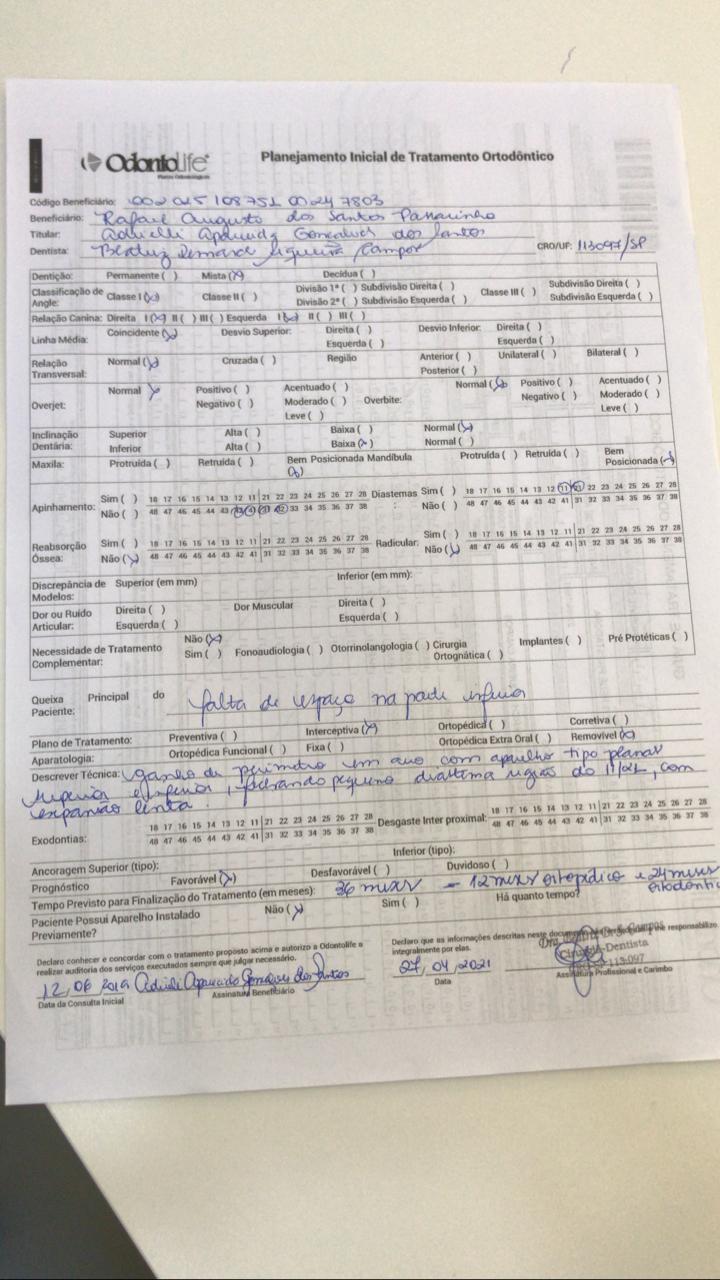 Odontolife
Planos Odontológicos
Planejamento Inicial de Tratamento Ortodôntico
Código Beneficiário: 002 025 108751 0024 7803
Beneficiário: Rafael Augusto dos Santos Passarinho
Titular: Adrielli Aparecida Goncalves dos Santos
Dentista: Siqueira Campos CRO/UF: 113097/SP
Dentição: Permanente ( ) Mista (x) Decídua ( )
Classificação de Angle: Classe I (x) Classe II ( ) Divisão 1ª ( ) Subdivisão Direita ( ) Classe III ( ) Subdivisão Direita ( )
Divisão 2ª ( ) Subdivisão Esquerda ( ) Subdivisão Esquerda ( )
Relação Canina: Direita I (x) II ( ) III ( ) Esquerda I (x) II ( ) III ( )
Linha Média: Coincidente (x) Desvio Superior: Direita ( ) Desvio Inferior: Direita ( )
Esquerda ( ) Esquerda ( )
Relação Transversal: Normal (x) Cruzada ( ) Região Anterior ( ) Unilateral ( ) Bilateral ( )
Posterior ( )
Overjet: Normal x Positivo ( ) Acentuado ( ) Overbite: Normal (x) Positivo ( ) Acentuado ( )
Negativo ( ) Moderado ( ) Negativo ( ) Moderado ( )
Leve ( ) Leve ( )
Inclinação Dentária: Superior Alta ( ) Baixa ( ) Normal (x)
Inferior Alta ( ) Baixa (x) Normal ( )
Maxila: Protruída ( ) Retruída ( ) Bem Posicionada (x) Mandíbula Protruída ( ) Retruída ( ) Bem Posicionada (x)
Apinhamento: Sim ( ) 18 17 16 15 14 13 12 11 21 22 23 24 25 26 27 28 Diastemas: Sim ( ) 18 17 16 15 14 13 12 11 21 22 23 24 25 26 27 28
Não ( ) 48 47 46 45 44 43 42 41 31 32 33 34 35 36 37 38 Não ( ) 48 47 46 45 44 43 42 41 31 32 33 34 35 36 37 38
Reabsorção Óssea: Sim ( ) 18 17 16 15 14 13 12 11 21 22 23 24 25 26 27 28 Radicular: Sim ( ) 18 17 16 15 14 13 12 11 21 22 23 24 25 26 27 28
Não (x) 48 47 46 45 44 43 42 41 31 32 33 34 35 36 37 38 Não (x) 48 47 46 45 44 43 42 41 31 32 33 34 35 36 37 38
Discrepância de Modelos: Superior (em mm) Inferior (em mm):
Dor ou Ruído Articular: Direita ( ) Dor Muscular Direita ( )
Esquerda ( ) Esquerda ( )
Necessidade de Tratamento Complementar: Não (x)
Sim ( ) Fonoaudiologia ( ) Otorrinolangologia ( ) Cirurgia Ortognática ( ) Implantes ( ) Pré Protéticas ( )
Queixa Principal do Paciente: falta de espaço na parte inferior
Plano de Tratamento: Preventiva ( ) Interceptiva (x) Ortopédica ( ) Corretiva ( )
Aparatologia: Ortopédica Funcional ( ) Fixa ( ) Ortopédica Extra Oral ( ) Removível (x)
Descrever Técnica: ganho de perímetro em arco com aparelho tipo planas
superior e inferior, fechando pequeno diastema região do 11/21, com
expansão lenta.
Exodontias: 18 17 16 15 14 13 12 11 21 22 23 24 25 26 27 28 Desgaste Inter proximal: 18 17 16 15 14 13 12 11 21 22 23 24 25 26 27 28
48 47 46 45 44 43 42 41 31 32 33 34 35 36 37 38 48 47 46 45 44 43 42 41 31 32 33 34 35 36 37 38
Ancoragem Superior (tipo): Inferior (tipo):
Prognóstico Favorável (x) Desfavorável ( ) Duvidoso ( )
Tempo Previsto para Finalização do Tratamento (em meses): 36 meses - 12 meses ortopédico e 24 meses
Paciente Possui Aparelho Instalado Previamente? Não (x) Sim ( ) Há quanto tempo?
Declaro conhecer e concordar com o tratamento proposto acima e autorizo a Odontolife a
realizar auditoria dos serviços executados sempre que julgar necessário.
12, 06 2019 Adrieli Aparecida Gonçalves dos Santos
Data da Consulta Inicial Assinatura Beneficiário
Declaro que as informações descritas neste documento me responsabilizo
integralmente por elas.
27, 04, 2021
Data
Dra. Campos
Cirurgiã-Dentista
113.097
Assinatura Profissional e Carimbo